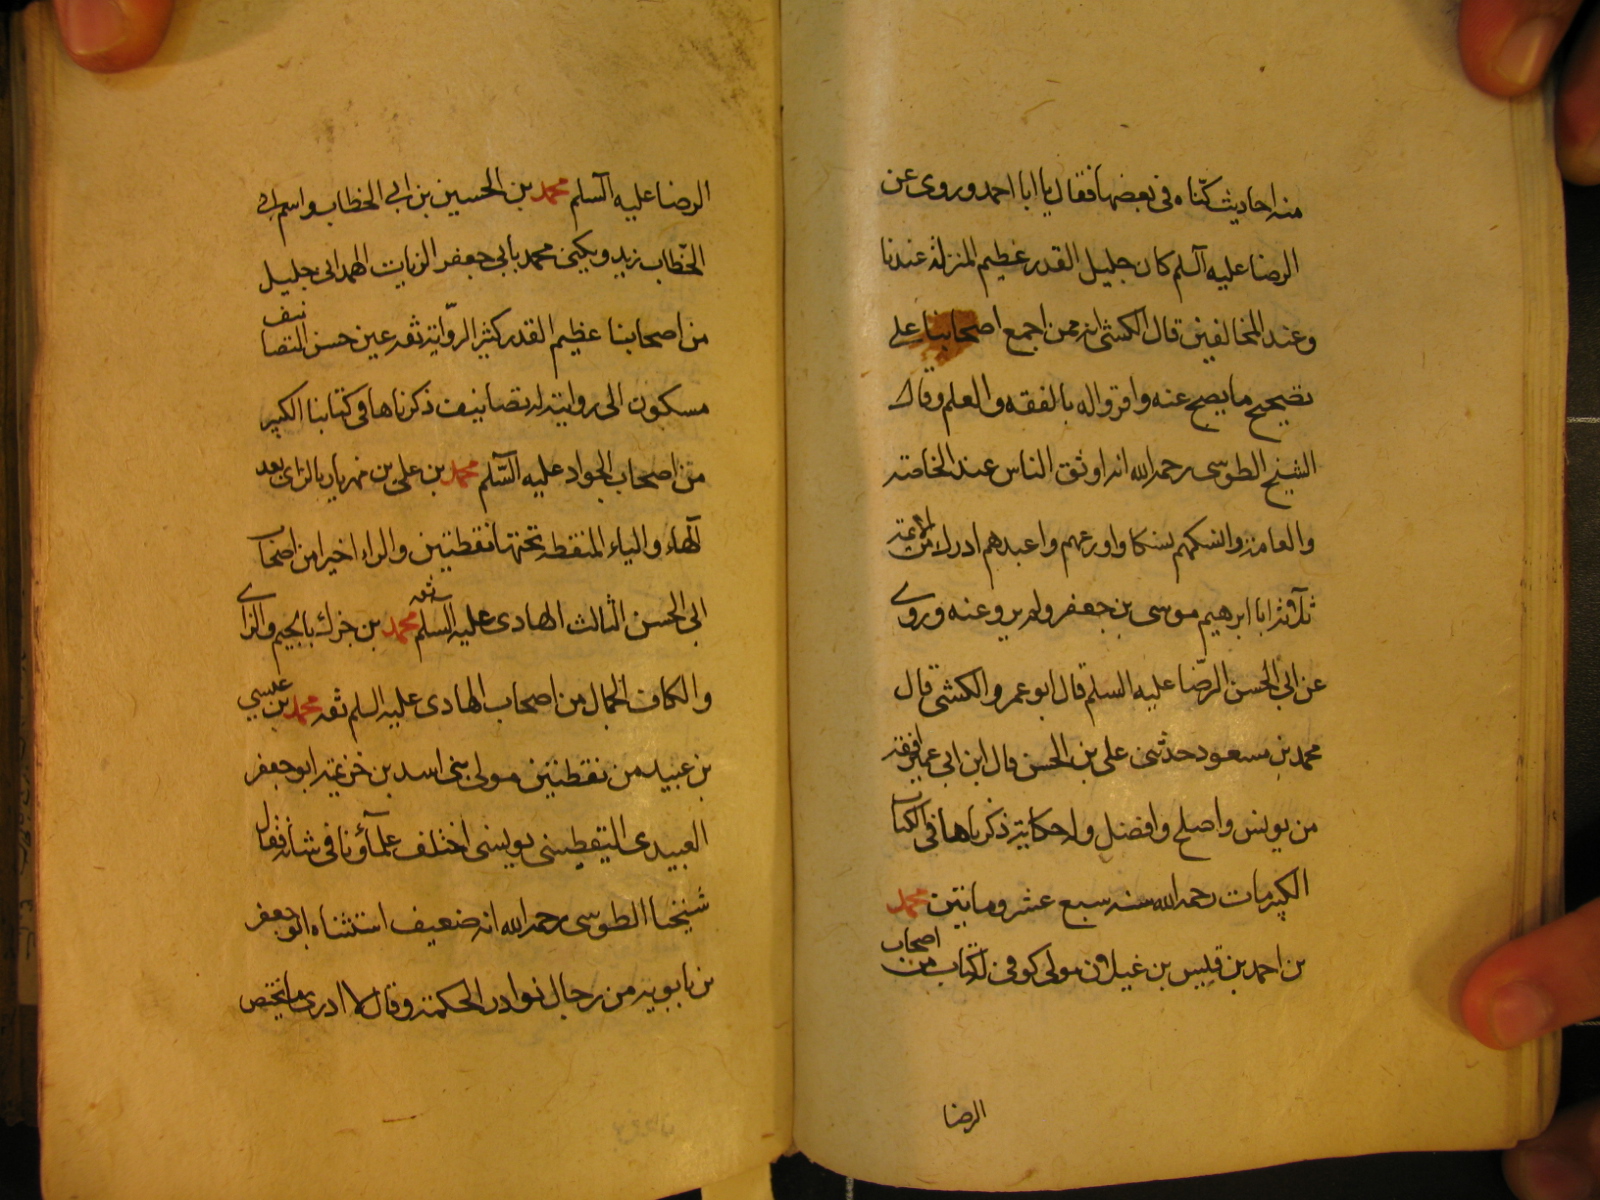 منه احاديث كنّاه فى بعضها فقال يا ابا احمد وروى عن
الرضا عليه السلم كان جليل القدر عظيم المنزلة عندنا
وعند المخالفين قال الكشى انه ممن اجمع اصحابنا على
تصحيح ما يصح عنه واقرواله بالفقه والعلم وقال
الشيخ الطوسى رحمه الله انه اوثق الناس عند الخاصة
والعامة وانسكهم نسكا واورعهم واعبدهم ادرك من الائمة
ثلاثة ابا ابرهيم موسى بن جعفر ولم يرو عنه وروى
عن ابى الحسن الرّضا عليه السلم قال ابو عمرو الكشى قال
محمد بن مسعود حدثنى على بن الحسن قال ابن ابى عمير افقه
من يونس واصلح وافضل وله حكاية ذكرناها فى الكتاب
الكبير مات رحمه الله سنة سبع عشر ومائتين محمد
بن احمد بن قيس بن غيلان مولى كوفى لكتاب من اصحاب
الرضا
الرضا عليه السلم محمد بن الحسين بن ابى الخطاب واسم ابى
الخطاب زيد ويكنى محمد بابى جعفر الزيات الهمدانى جليل
من اصحابنا عظيم القدر كثير الرّواية ثقة عين حسن التصانيف
مسكون الى روايته له تصانيف ذكرناها فى كتابنا الكبير
من اصحاب الجواد عليه السّلم محمد بن على بن مهزيار بالزاى بعد
الهاء والياء المنقطة تحتها نقطتين والراء اخيرا من اصحاب
ابى الحسن الثالث الهادى عليه السلم ثقة محمد بن جزك بالجيم والزاى
والكاف الجمال من اصحاب الهادى عليه السلم ثقة محمد بن عيسى
بن عبيد من نقطتين مولى بنى اسد بن خزيمة ابو جعفر
العبيدى اليقطينى يونسى اختلف علمآؤنا فى شانه فقال
شيخنا الطوسى رحمه الله انه ضعيف استثناه ابو جعفر
بن بابويه من رجال نوادر الحكمة وقال لا ادرى ما يختص